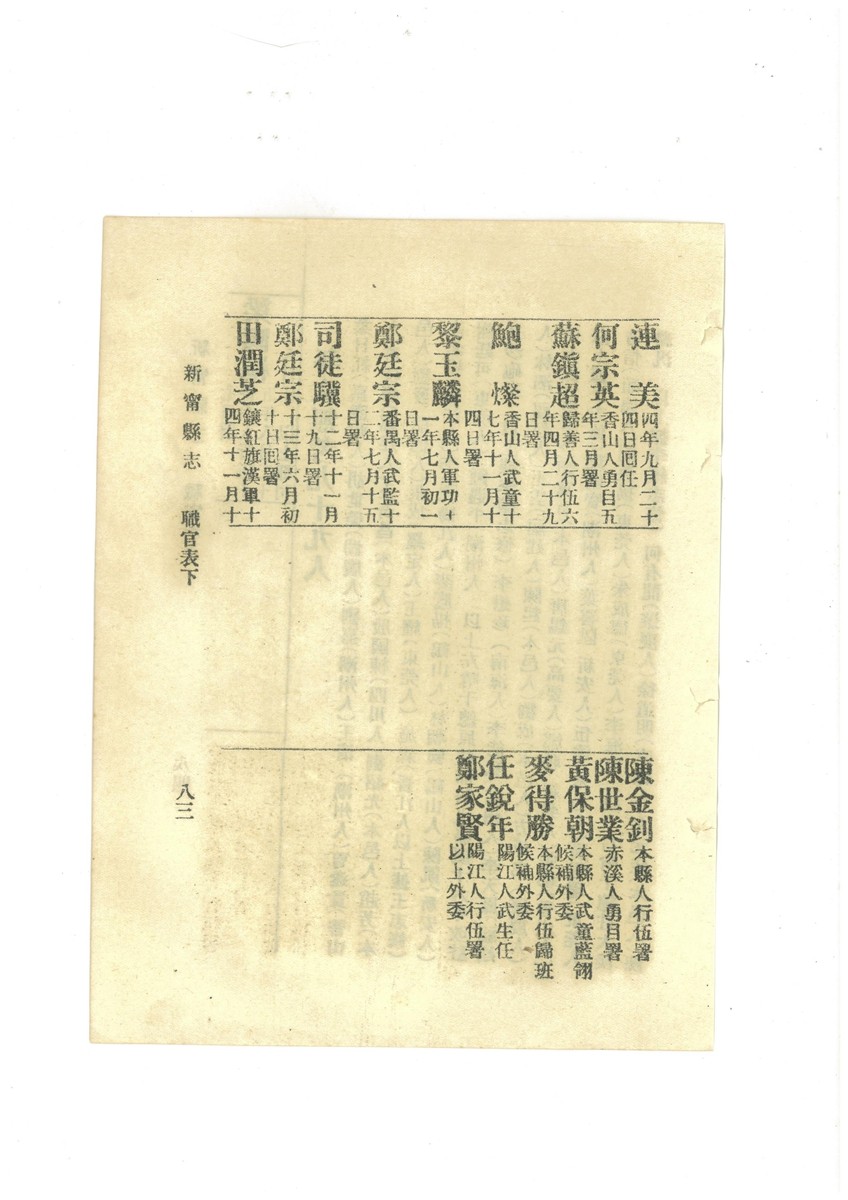 連　美
四年九月二十
四日囘任
何宗英
香山人勇目五
年三月署
蘇鎮超
歸善人行伍六
年四月二十九
日署
鮑　燦
香山人武童十
七年十一月十
四日署
黎玉麟
本縣人軍功十
一年七月初一
日署
鄭廷宗
番禺人武監十
二年七月十五
日署
司徒驥
十二年十一月
十九日署
鄭廷宗
十三年六月初
十日囘署
田潤芝
鑲紅旗漢軍十
四年十一月十
陳金釗
本縣人行伍署
陳世業
赤溪人勇目署
黃保朝
本縣人武童藍翎
候補外委
麥得勝
本縣人行伍歸班
候補外委
任銳年
陽江人武生任
鄭家賢
陽江人行伍署
以上外委
新甯縣志
職官表下
八三